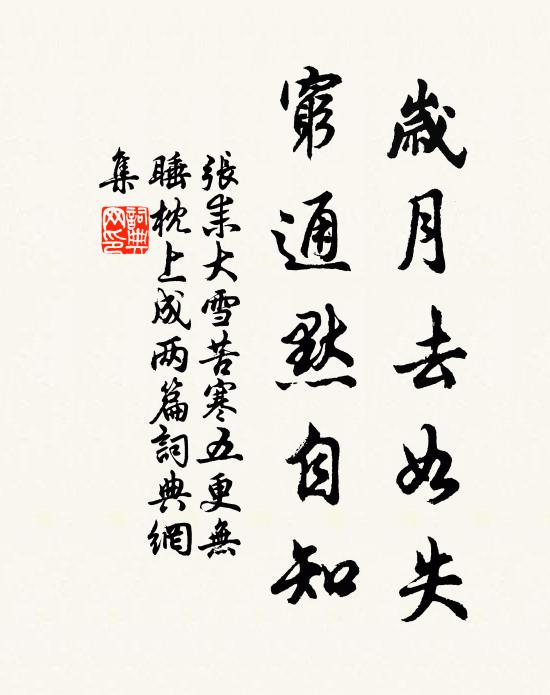 歲月去如失
窮通默自知
張耒大雪苦寒五更無
睡枕上成两篇詞典網
集
詞典
网印